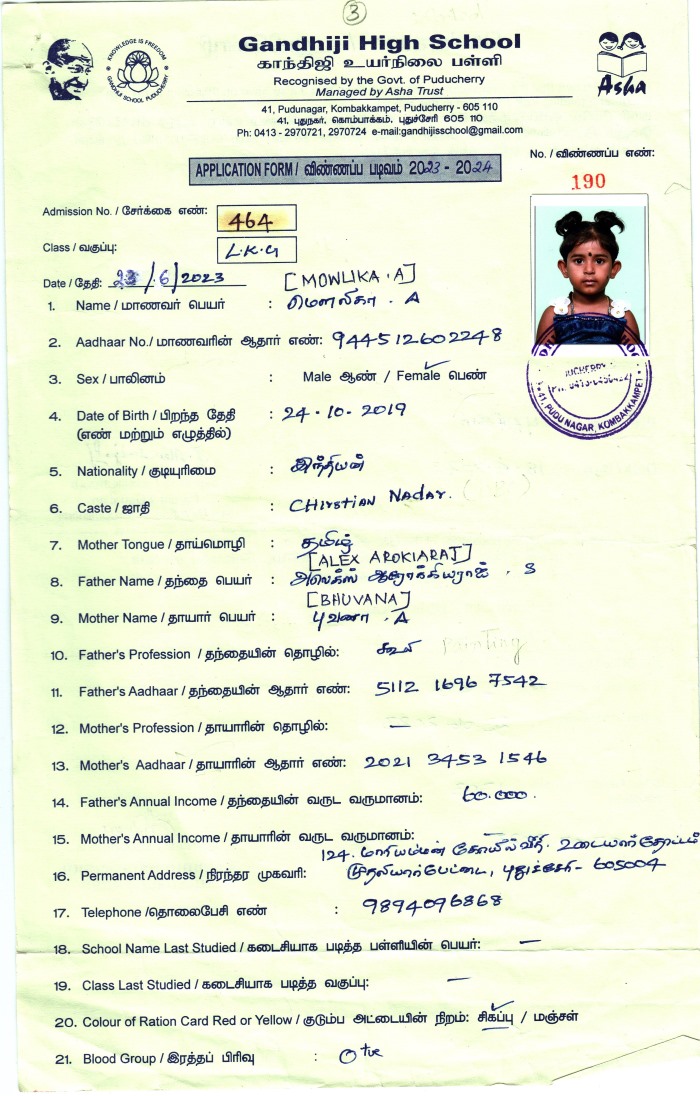 3
Gandhiji High School
காந்திஜி உயர்நிலை பள்ளி
Recognised by the Govt. of Puducherry
Managed by Asha Trust
KNOWLEDGE IS FREEDOM
GANDHIJI SCHOOL PUDUCHERRY
Asha
41, Pudunagar, Kombakkampet, Puducherry - 605 110
41, புதுநகர், கொம்பாக்கம், புதுச்சேரி 605 110
Ph: 0413 - 2970721, 2970724 e-mail:gandhijisschool@gmail.com
APPLICATION FORM / விண்ணப்ப படிவம் 2023 - 2024
No. / விண்ணப்ப எண்:
190
Admission No. / சேர்க்கை எண்: 464
Class / வகுப்பு: L.K.G
Date / தேதி: 23/6/2023
[MOWLIKA.A]
1. Name / மாணவர் பெயர் : மௌலிகா . A
2. Aadhaar No./ மாணவரின் ஆதார் எண்: 944512602248
3. Sex / பாலினம் : Male ஆண் / Female பெண்
4. Date of Birth / பிறந்த தேதி : 24-10-2019
(எண் மற்றும் எழுத்தில்)
5. Nationality / குடியுரிமை : இந்தியன்
6. Caste / ஜாதி : CHIrstian Nadar.
7. Mother Tongue / தாய்மொழி : தமிழ்
[ALEX AROKIARAJ]
8. Father Name / தந்தை பெயர் : அலெக்ஸ் ஆரோக்கியராஜ் . S
[BHUVANA]
9. Mother Name / தாயார் பெயர் : புவனா . A
10. Father's Profession / தந்தையின் தொழில்: கூலி Painting
11. Father's Aadhaar / தந்தையின் ஆதார் எண்: 5112 1696 7542
12. Mother's Profession / தாயாரின் தொழில்: —
13. Mother's Aadhaar / தாயாரின் ஆதார் எண்: 2021 3453 1546
14. Father's Annual Income / தந்தையின் வருட வருமானம்: 60.000.
15. Mother's Annual Income / தாயாரின் வருட வருமானம்: —
124. மாரியம்மன் கோயில் வீதி. உடையார் தோட்டம்
16. Permanent Address / நிரந்தர முகவரி: முதலியார்பேட்டை, புதுச்சேரி - 605004
17. Telephone /தொலைபேசி எண் : 9894096868
18. School Name Last Studied / கடைசியாக படித்த பள்ளியின் பெயர்: —
19. Class Last Studied / கடைசியாக படித்த வகுப்பு: —
20. Colour of Ration Card Red or Yellow / குடும்ப அட்டையின் நிறம்: சிகப்பு / மஞ்சள்
21. Blood Group / இரத்தப் பிரிவு : O+ve
41, PUDU NAGAR, KOMBAKKAMPET